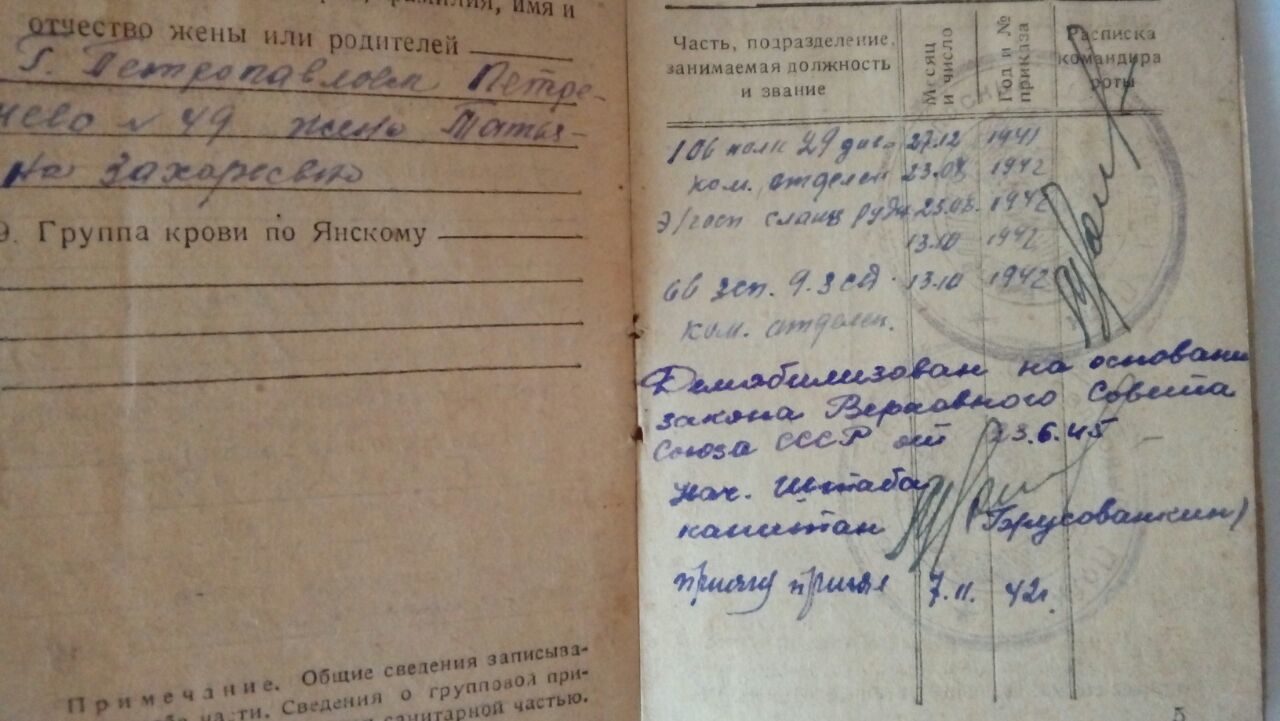 фамилия, имя и
отчество жены или родителей
г. Петропавловск Петре-
нево № 49 жена Татья-
на Захаровна
9. Группа крови по Янскому
Примечание. Общие сведения записыва-
части. Сведения о групповой при-
санитарной частью.
Часть, подразделение, занимаемая должность и звание
Месяц и число
Год и № приказа
Расписка командира роты
106 полк 29 див. 27.12 1941
ком. отделен 23.08 1942
Э/госп 23.08. 1942
13.10 1942
66 зсп. 9. зсд. 13.10 1942
ком. отделен.
Демобилизован на основани
закона Верховного Совета
Союза СССР от 23.6.45
нач. Штаба
капитан
присягу принял 7.11. 42г.
5